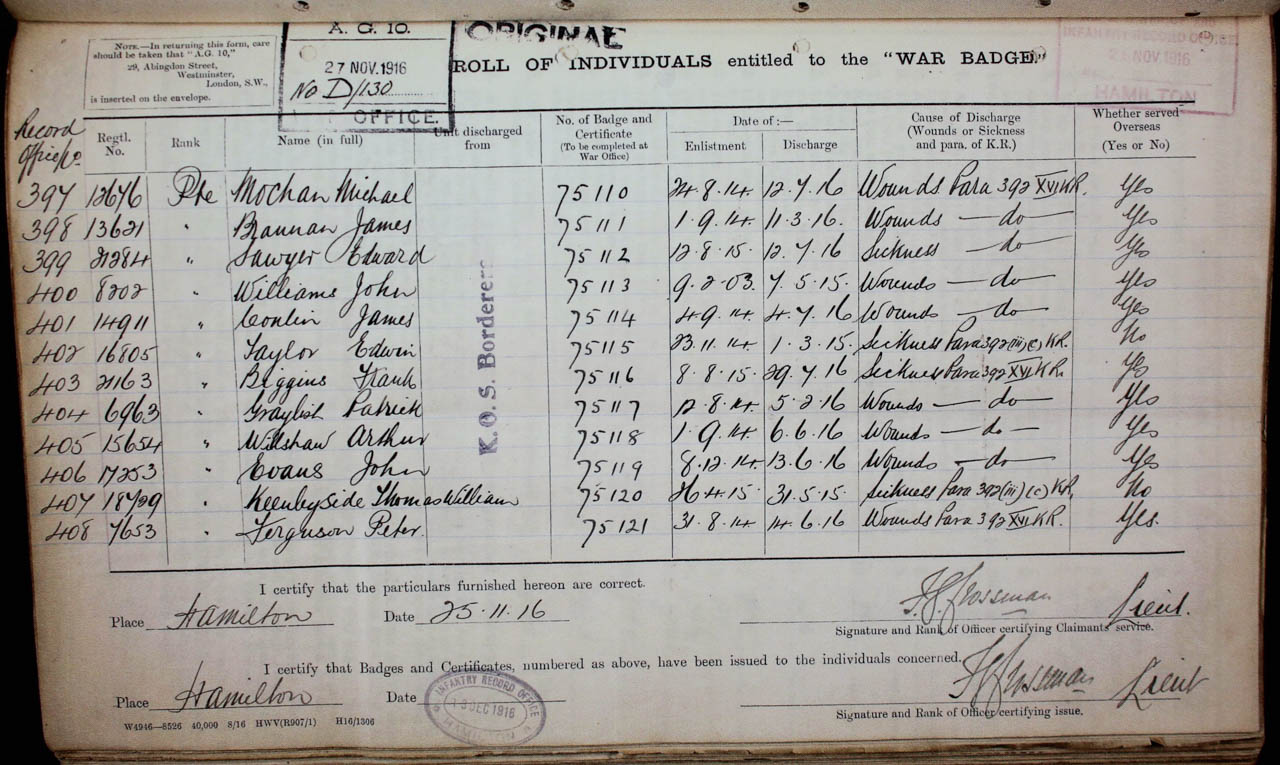 NOTE.—In returning this form, care
should be taken that "A.G. 10,"
29, Abingdon Street,
Westminster,
London, S.W.,
is inserted on the envelope.
A. G. 10.
27 NOV. 1916
No D/130
OFFICE.
ORIGINAL
ROLL OF INDIVIDUALS entitled to the "WAR BADGE"
INFANTRY RECORD OFFICE
25 NOV 1916
HAMILTON
Record Office No Regtl. No. Rank Name (in full) Unit discharged from No. of Badge and Certificate (To be completed at War Office) Date of :— Enlistment Discharge Cause of Discharge (Wounds or Sickness and para. of K.R.) Whether served Overseas (Yes or No)
397 12676 Pte Mochan Michael 75110 24.8.14 12.7.16 Wounds Para 392 XVI KR. Yes
398 13621 " Brannan James 75111 1.9.14 11.3.16. Wounds — do — Yes
399 21284 " Sawyer Edward 75112 12.8.15. 12.7.16 Sickness — do — Yes
400 8202 " Williams John 75113 9.2.03. 7.5.15. Wounds — do — Yes
401 14911 " Conlin James 75114 4.9.14. 4.7.16 Wounds — do — Yes
402 16805 " Taylor Edwin 75115 23.11.14 1.3.15. Sickness Para 392(iii)(c) KR. No
403 21163 " Biggins Frank 75116 8.8.15. 29.7.16 Sickness Para 392 XVI KR. Yes
404 6963 " Graylish Patrick 75117 12.8.14. 5.2.16 Wounds — do — Yes
405 15654 " Wilshaw Arthur 75118 1.9.14. 6.6.16 Wounds — do — Yes
406 17253 " Evans John 75119 8.12.14 13.6.16 Wounds — do — Yes
407 18729 " Keenleyside Thomas William 75120 26.4.15. 31.5.15. Sickness Para 392(iii)(c) KR, No
408 7653 " Ferguson Peter. 75121 31.8.14 14.6.16 Wounds Para 392 XVI KR. Yes.
K. O. S. Borderers
I certify that the particulars furnished hereon are correct.
Place Hamilton Date 25.11.16 Lieut.
Signature and Rank of Officer certifying Claimants' service.
I certify that Badges and Certificates, numbered as above, have been issued to the individuals concerned.
Place Hamilton Date Lieut
INFANTRY RECORD OFFICE
DEC 1916
HAMILTON
Signature and Rank of Officer certifying issue.
W4946—8526 40,000 8/16 HWV(R907/1) H16/1306